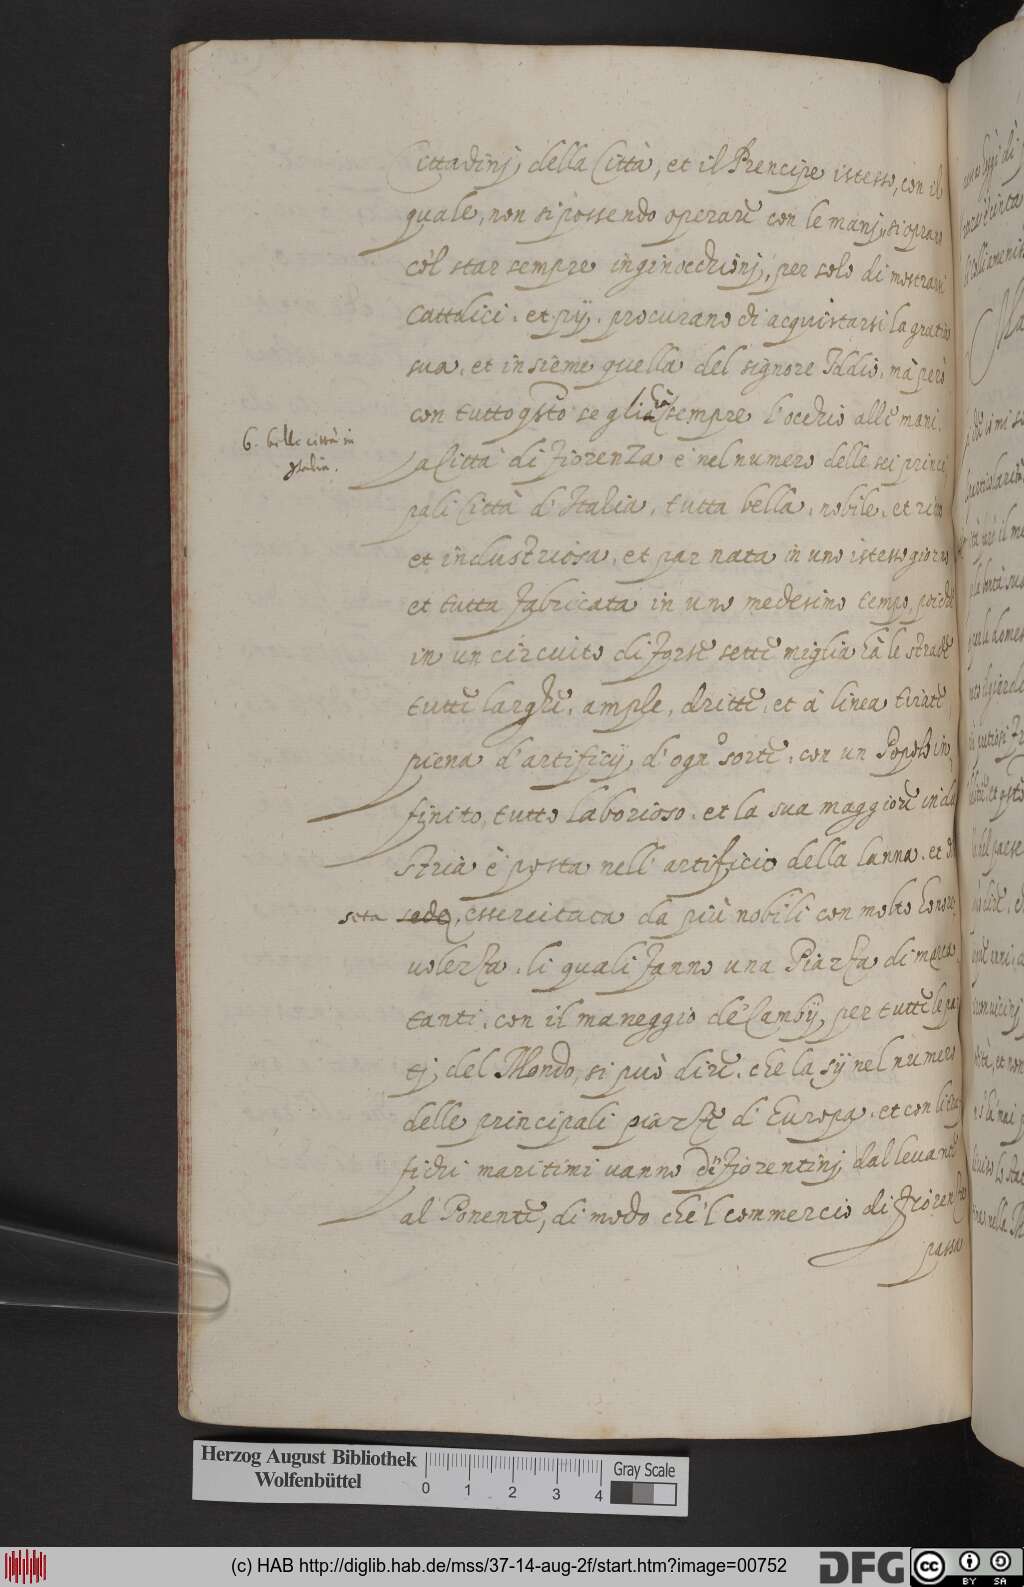 Cittadinj della Città, et il Prencipe istesso, con il
quale, non si possendo operarẽ con le manj, si oprano
cól star sempre inginocchionj, per solo di mostrarsi
Cattolici. et pij. procurano di acquistarsi la gratia
sua. et insieme quella del signore Iddio. mà però
con tutto qsto se gli hà sempre l'occhio allẽ mani.
6. belle città in
Italia.
La Città di Fiorenza è nel numero delle sei princi
pali Città d'Italia, tutta bella, nobile, et ricca
et industriosa, et par nata in uno istesso giorno
et tutta fabricata in uno medesimo tempo, poiche
in un circuito di forsẽ settẽ miglia hà le stradẽ
tuttẽ larghẽ, ample, drittẽ, et à linea tiratẽ
piena d'artificij d'ogn sortẽ. con un Popolo in,
finito, tutto laborioso. et la sua maggiorẽ indu
stria è posta nell'artificio della lanna. et di
seta sede, essercitata da più nobili con molto honore,
volezza. li quali fanno una Piazza di merca
tanti. con il maneggio de Cambij, per tuttẽ le par
tj del Mondo, si può dirẽ. che la sij nel numero
delle principali piazzẽ d'Europa. et con li tra
fichi maritimi vanno di Fiorentinj dal levantẽ
al Ponentẽ, di modo che'l commercio di Fiorenza
passa
Herzog August Bibliothek
Wolfenbüttel
0 1 2 3 4
Gray Scale
(c) HAB http://diglib.hab.de/mss/37-14-aug-2f/start.htm?image=00752
DFG
cc BY SA